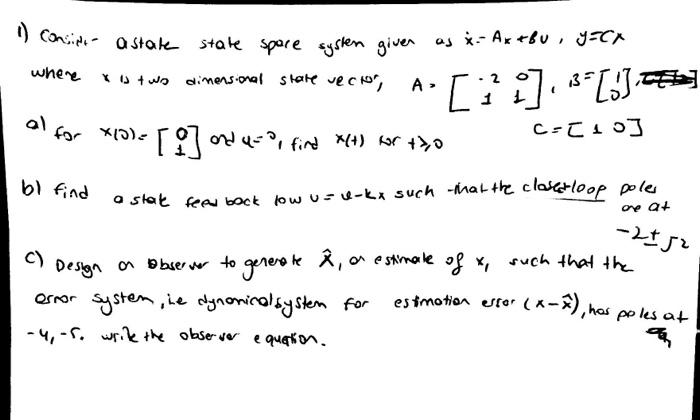 1) Consider a state state space system given as ẋ = Ax + Bu, y = Cx
where x is two dimensional state vector, A = [-2 0; 1 1], B = [1; 0],
C = [1 0]
a) for x(0) = [0; 1] and u = 0, find x(t) for t ≥ 0
b) find a state feed back low u = v - kx such that the closed loop poles
are at
-2 ± j2
c) Design an observer to generate x̂, an estimate of x, such that the
error system, i.e dynamical system for estimation error (x - x̂), has poles at
-4, -5. write the observer equation.